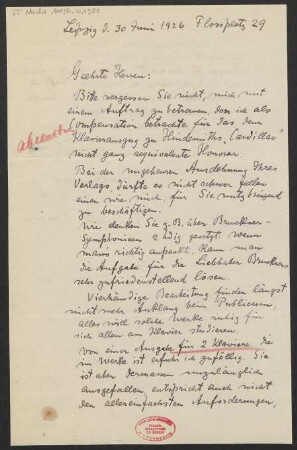 Leipzig d. 30 Juni 1926 Flossplatz 29
Geehrte Herren:
Bitte vergessen Sie nicht, mich mit
einem Auftrag zu betrauen, den ich als
Compensation betrachte für das dem
Klavierauszug zu Hindemiths „Cardillac“
nicht ganz äquivalente Honorar.
Bei der ungeheuren Ausdehnung Ihres
Verlags, dürfte es nicht schwer fallen
einen wie mich für Sie nutzbringend
zu beschäftigen.
Wie denken Sie z. B. über Bruckner-
Symphonieen 2 hdig gesetzt. Wenn
mans richtig aufpackt, kann man
die Aufgabe für die Liebhaber Bruckners
sehr zufriedenstellend lösen.
Vierhändige Bearbeitung finden längst
nicht mehr Anklang beim Publicum,
alles will solche Werke ruhig für
sich allein am Klavier studieren.
Von einer Ausgabe für 2 Klaviere die
im Werke ist erfuhr ich zufällig. Sie
ist aber dermassen unzulänglich
ausgefallen, entspricht auch nicht
den allereinfachsten Anforderungen,